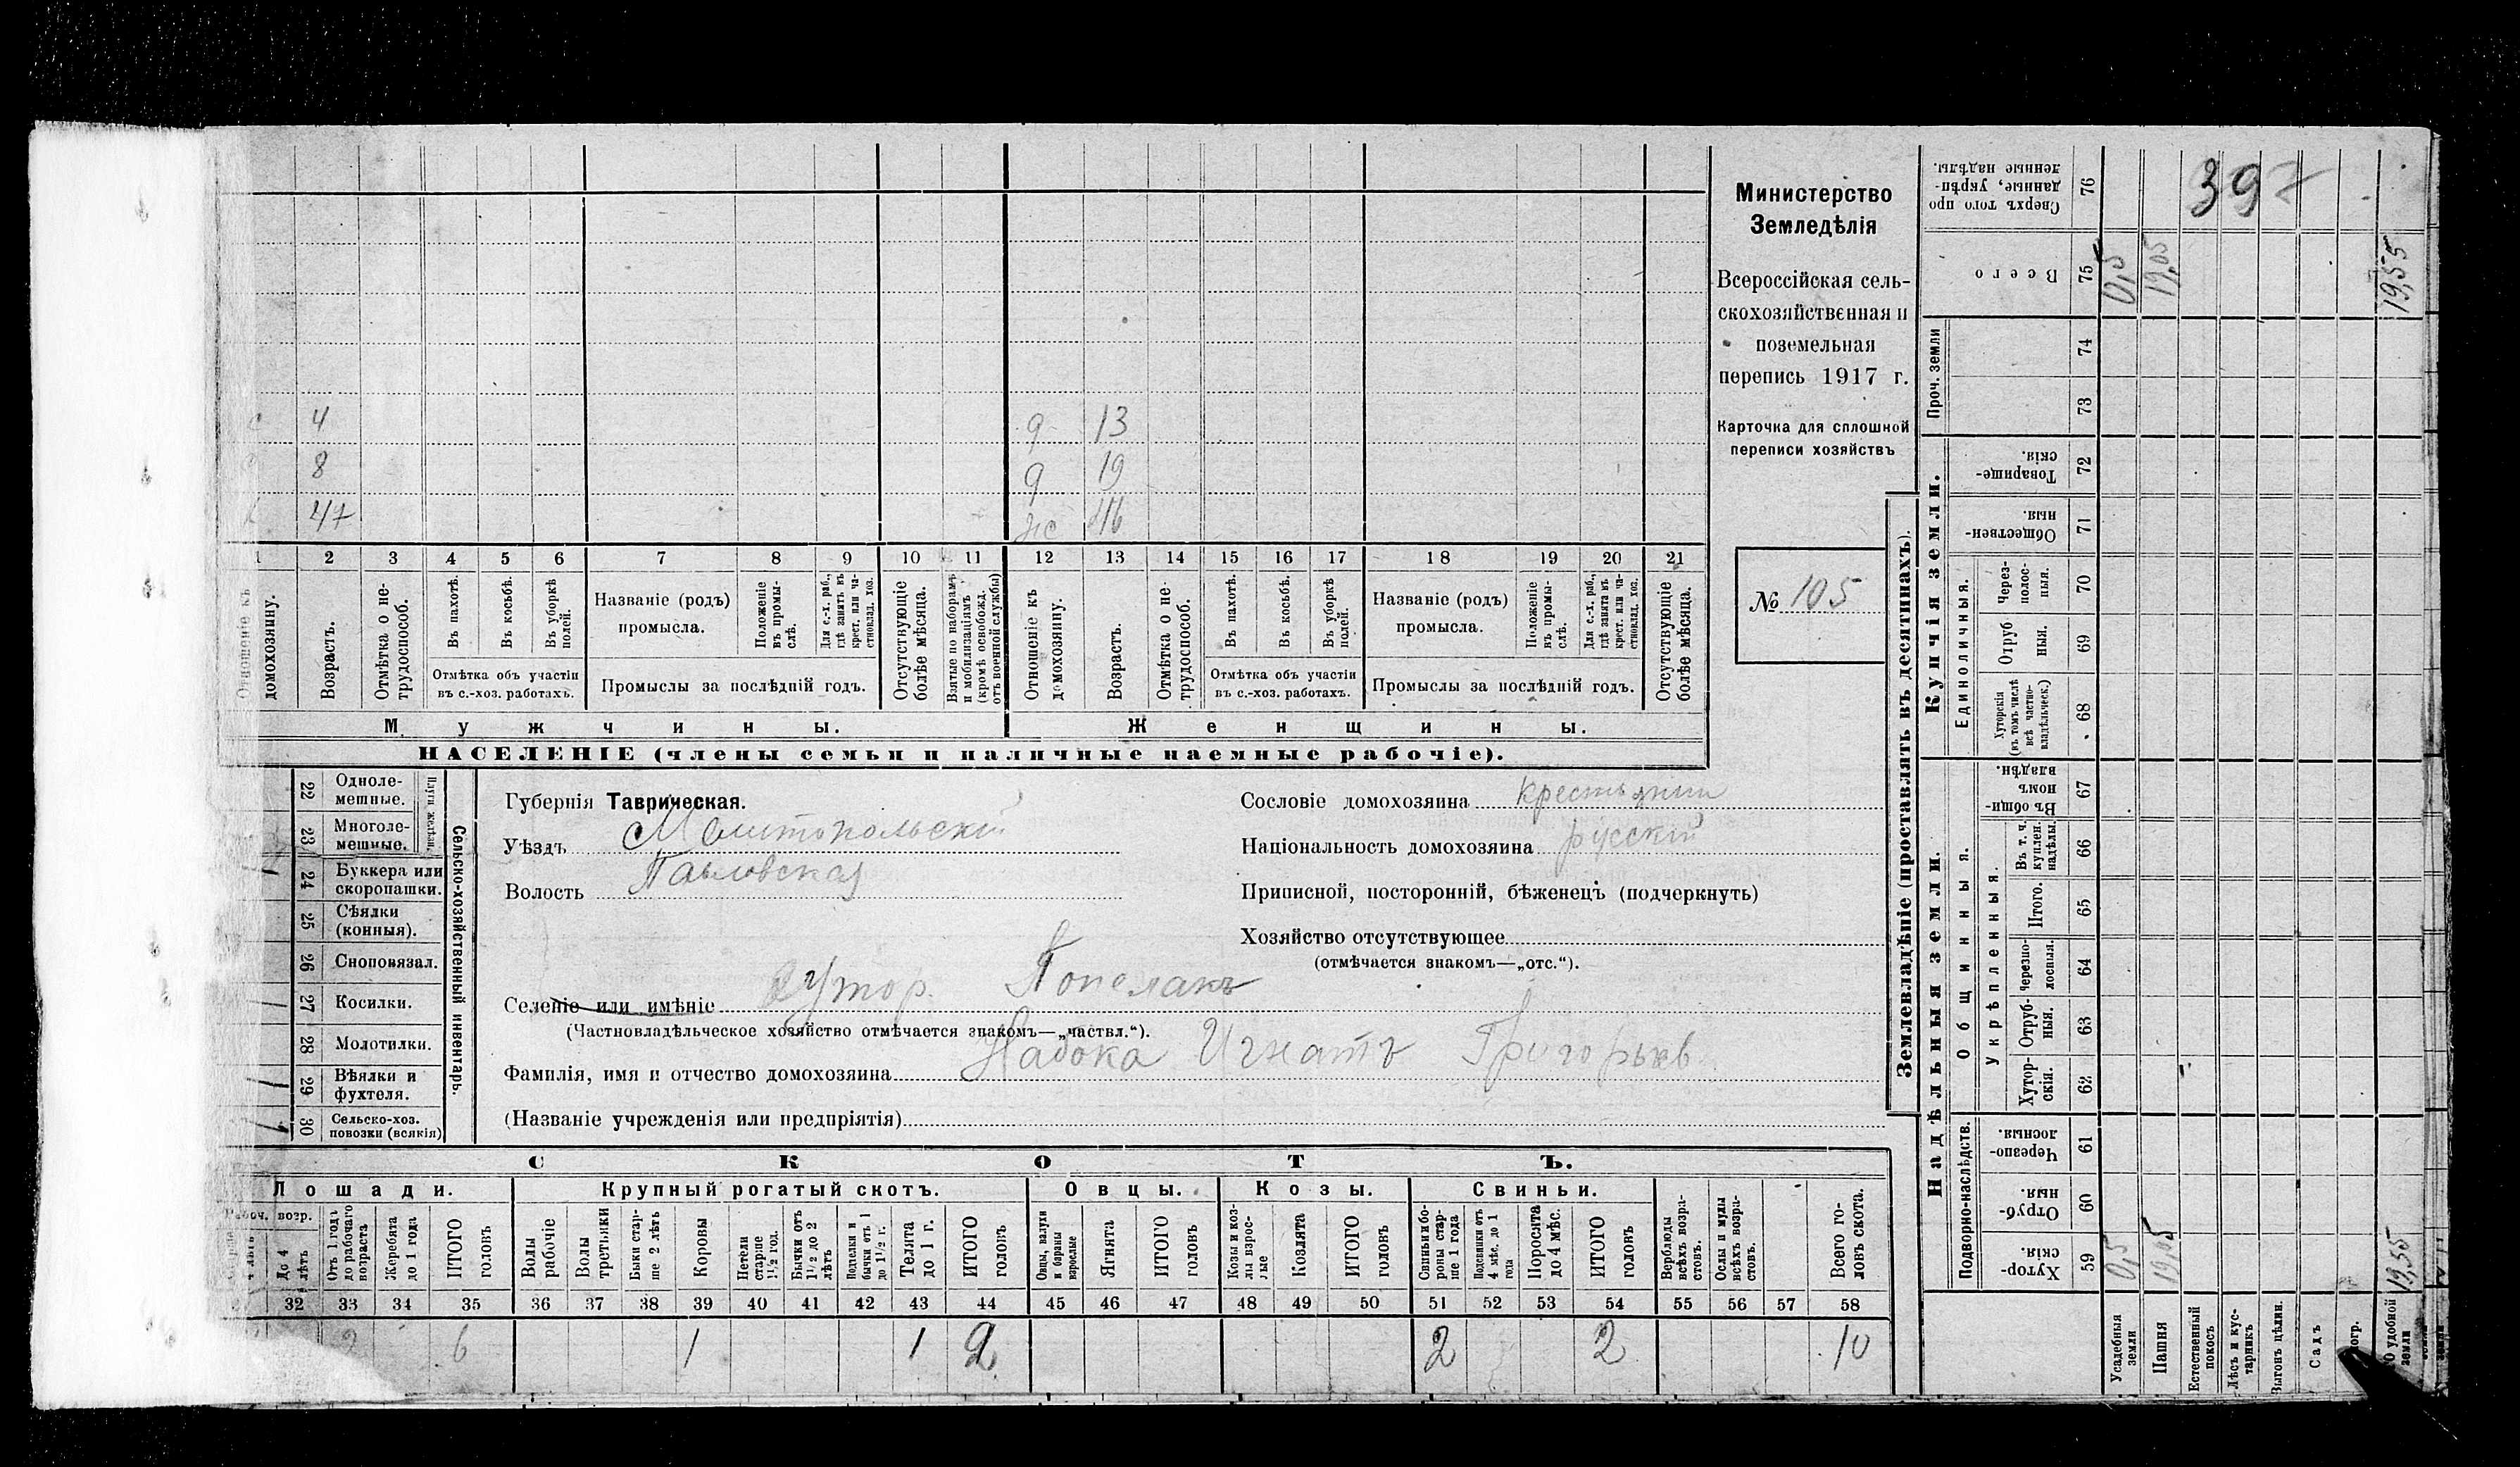 4 9 13
8 9 19
47 46
1 2 3 4 5 6 7 8 9 10 11 12 13 14 15 16 17 18 19 20 21
Отношеніе къ домохозяину.
Возрастъ.
Отмѣтка о не-
трудоспособ.
Въ пахотѣ.
Въ косьбѣ.
Въ уборкѣ
полей.
Отмѣтка объ участіи
въ с.-хоз. работахъ.
Названіе (родъ)
промысла.
Положеніе
въ промы-
слѣ.
Для с.-х. раб.,
гдѣ занятъ въ
крест. или ча-
стновлад. хоз.
Промыслы за послѣдній годъ.
Отсутствующіе
болѣе мѣсяца.
Взятые по наборамъ
и мобилизаціямъ
(кромѣ освобожд.
отъ военной службы)
Отношеніе къ
домохозяину.
Возрастъ.
Отмѣтка о не-
трудоспособ.
Въ пахотѣ.
Въ косьбѣ.
Въ уборкѣ
полей.
Отмѣтка объ участіи
въ с.-хоз. работахъ.
Названіе (родъ)
промысла.
Положеніе
въ промы-
слѣ.
Для с.-х. раб.,
гдѣ занята въ
крест. или ча-
стновлад. хоз.
Промыслы за послѣдній годъ.
Отсутствующіе
болѣе мѣсяца.
Мужчины. Женщины.
НАСЕЛЕНІЕ (члены семьи и наличные наемные рабочіе).
Министерство
Земледѣлія
Всероссійская сель-
скохозяйственная и
поземельная
перепись 1917 г.
Карточка для сплошной
переписи хозяйствъ
№ 105
22 Одноле-
мешные.
23 Многоле-
мешные.
Плуги желѣзн.
24 Буккера или
скоропашки.
25 Сѣялки
(конныя).
26 Сноповязал.
27 Косилки.
28 Молотилки.
29 Вѣялки и
фухтеля.
30 Сельско-хоз.
повозки (всякія)
Сельско-хозяйственный инвентарь.
Губернія Таврическая.
Уѣздъ Мелитопольскій
Волость Павловская
Сословіе домохозяина крестьянин
Національность домохозяина русскій
Приписной, посторонній, бѣженецъ (подчеркнуть)
Хозяйство отсутствующее
(отмѣчается знакомъ—„отс.“).
Селеніе или имѣніе хутор. Попелакъ
(Частновладѣльческое хозяйство отмѣчается знакомъ—„частвл.“).
Фамилія, имя и отчество домохозяина Набока Игнатъ Григорьев
(Названіе учрежденія или предпріятія)
СКОТЪ.
Лошади. Крупный рогатый скотъ. Овцы. Козы. Свиньи.
Рабоч. возр.
До 4
лѣтъ
Отъ 1 годъ
до рабочаго
возраста
Жеребята
до 1 года
ИТОГО
головъ
Волы
рабочіе
Волы
третьяки
Быки стар-
ше 2 лѣтъ
Коровы
Нетели
старше
1½ год.
Бычки отъ
1½ до 2
лѣтъ
Подтелки и
бычки отъ 1
до 1½ г.
Телята
до 1 г.
ИТОГО
головъ
Овцы, валухи
и бараны
взрослые
Ягнята
ИТОГО
головъ
Козы и коз-
лы взрос-
лые
Козлята
ИТОГО
головъ
Свиньи и бо-
ровы стар-
ше 1 года
Подсвинки отъ
4 мѣс. до 1
года
Поросята
до 4 мѣс.
ИТОГО
головъ
Верблюды
всѣхъ возра-
стовъ.
Ослы и мулы
всѣхъ возра-
стовъ.
Всего го-
ловъ скота.
32 33 34 35 36 37 38 39 40 41 42 43 44 45 46 47 48 49 50 51 52 53 54 55 56 57 58
6 1 1 2 2 2 10
Землевладѣніе (проставлять въ десятинахъ).
Надѣльныя земли. Купчія земли. Проч. земли
Подворно-наслѣдств.
Общинныя.
Укрѣпленныя.
Единоличныя.
Сверхъ того про
данные, укрѣп-
ленные надѣлы.
76
397
Всего
75
0,5 19,05 19,55
74
73
Товарище-
скія.
72
Обществен-
ныя.
71
Через-
полос-
ныя.
70
Отруб
ныя.
69
Хуторскія
(въ томъ числѣ
всѣ частно-
владѣльческ.)
68
Въ общи-
номъ
владѣн.
67
Въ т. ч.
куплен.
надѣлы.
66
Итого.
65
Черезпо-
лосныя.
64
Отруб-
ныя.
63
Хутор-
скія.
62
Черезпо-
лосныя.
61
Отруб-
ныя.
60
Хутор-
скія.
59
0,5 19,05 19,55
Усадебныя
земли
Пашня
Естественный
покосъ
Лѣсъ и кус-
тарникъ
Выгонъ цѣлин.
Садъ
удобной
земли